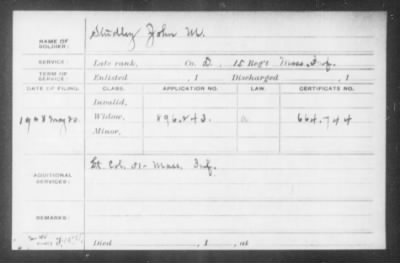 NAME OF SOLDIER: Studley John M.
SERVICE: Late rank, Co. D. 15 Reg't Mass. Inf.
TERM OF SERVICE: Enlisted , 1 Discharged , 1
DATE OF FILING. CLASS. APPLICATION NO. LAW. CERTIFICATE NO.
Invalid,
1908 May 20. Widow, 896.843. 664.744
Minor,
ADDITIONAL SERVICES: Lt Col. 51- Mass. Inf.
REMARKS:
Died , 1 , at